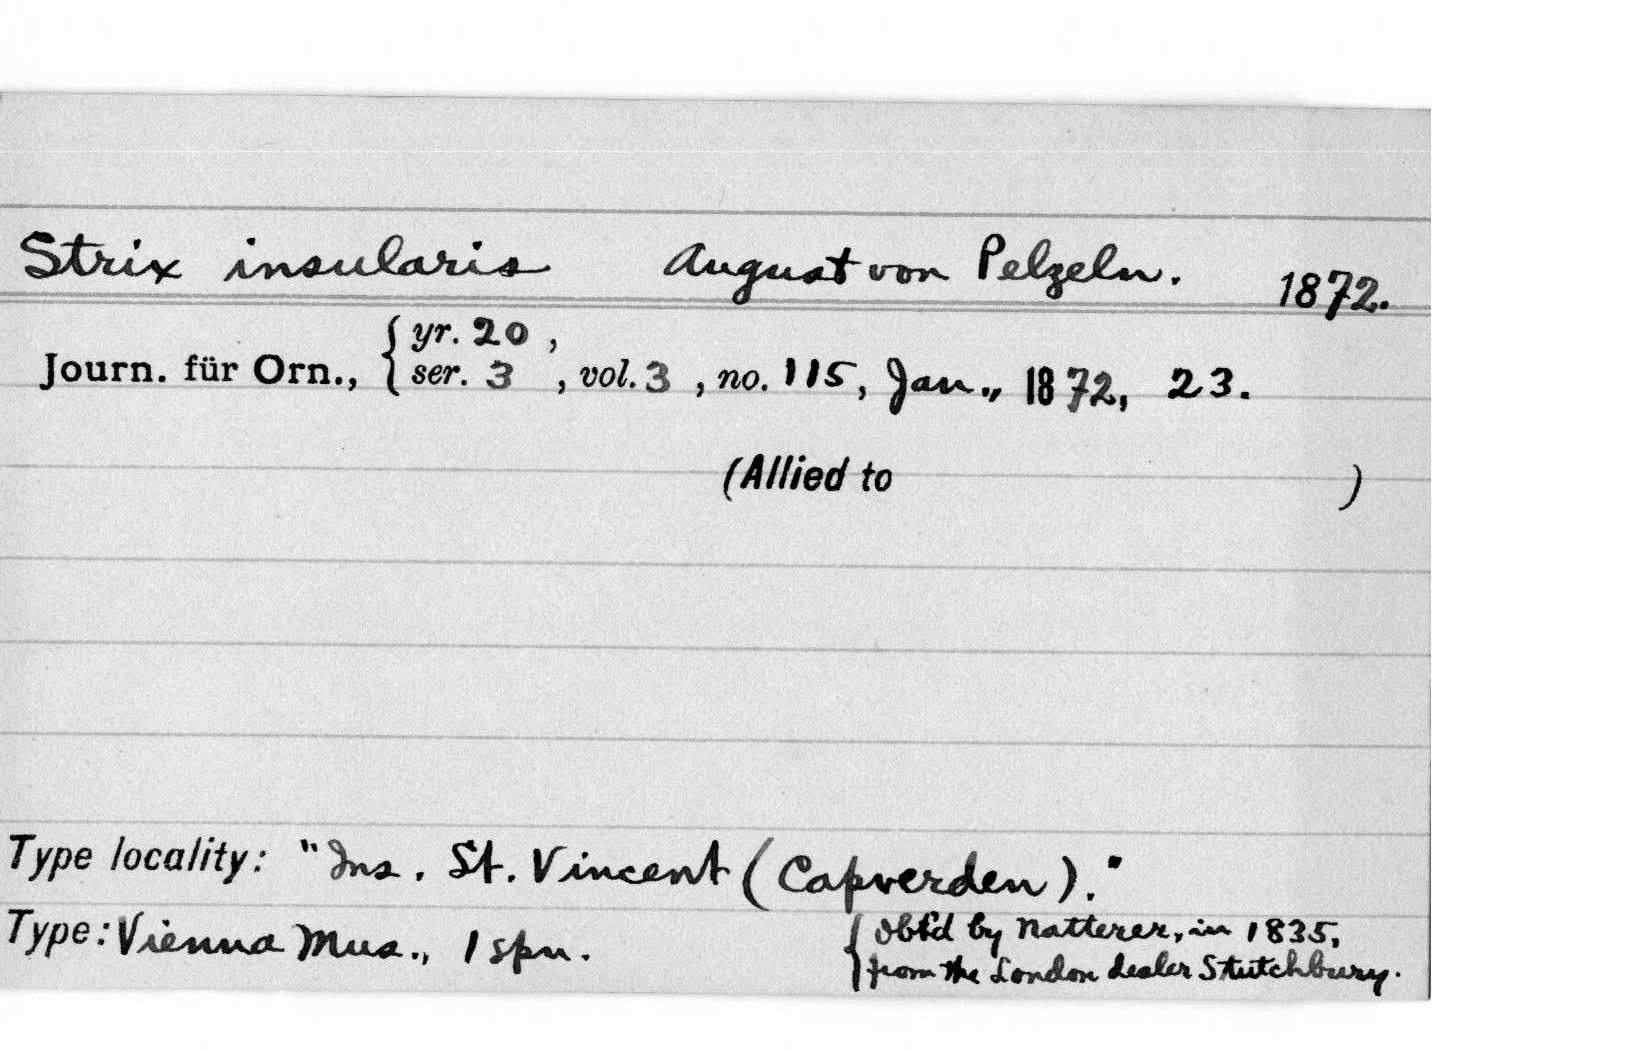 Strix insularis August von Pelzeln. 1872.
yr. 20,
Journ. für Orn., ser. 3, vol. 3, no. 115, Jan., 1872, 23.
(Allied to )
Type locality: "Ins. St. Vincent (Capverden)."
Type: Vienna Mus., 1 spn. obt'd by Natterer, in 1835,
from the London dealer Stutchbury.